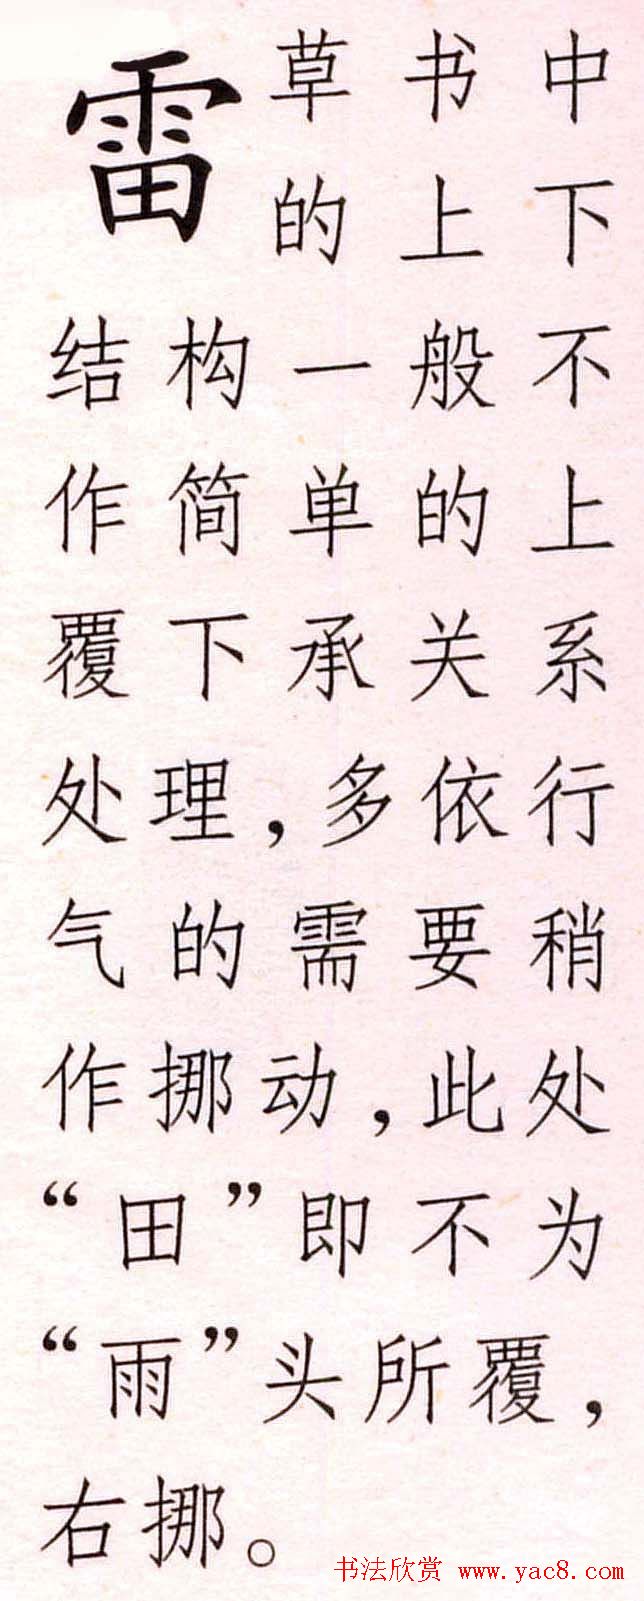 雷
草书中
的上下
结构一般不
作简单的上
覆下承关系
处理，多依行
气的需要稍
作挪动，此处
“田”即不为
“雨”头所覆，
右挪。
书法欣赏 www.yac8.com